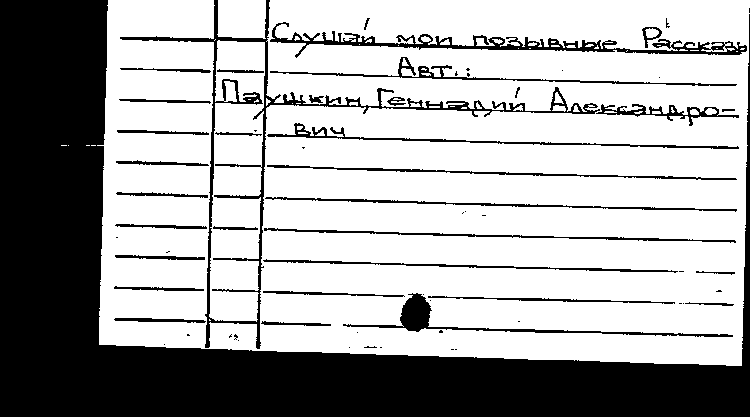 Слушай мои позывные Рассказы
Авт.:
Паушкин, Геннадий Александро-
вич